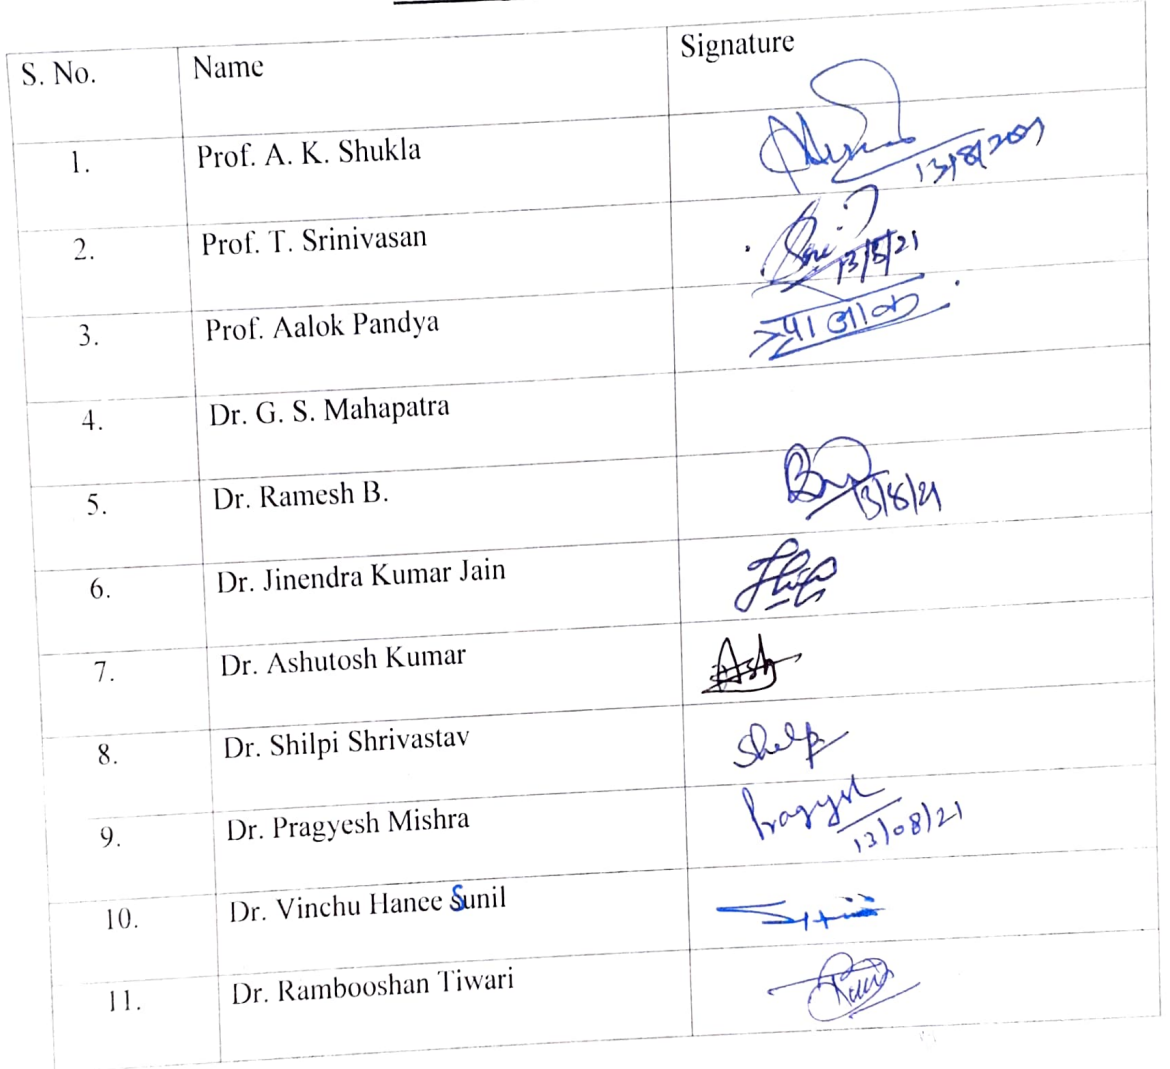 S. No. Name Signature
1. Prof. A. K. Shukla
13/8/2021
2. Prof. T. Srinivasan
13/8/21
3. Prof. Aalok Pandya
4. Dr. G. S. Mahapatra
5. Dr. Ramesh B.
13/8/21
6. Dr. Jinendra Kumar Jain
7. Dr. Ashutosh Kumar Ash
8. Dr. Shilpi Shrivastav Shilp
9. Dr. Pragyesh Mishra Pragyesh
13/08/21
10. Dr. Vinchu Hanee Sunil
11. Dr. Rambooshan Tiwari